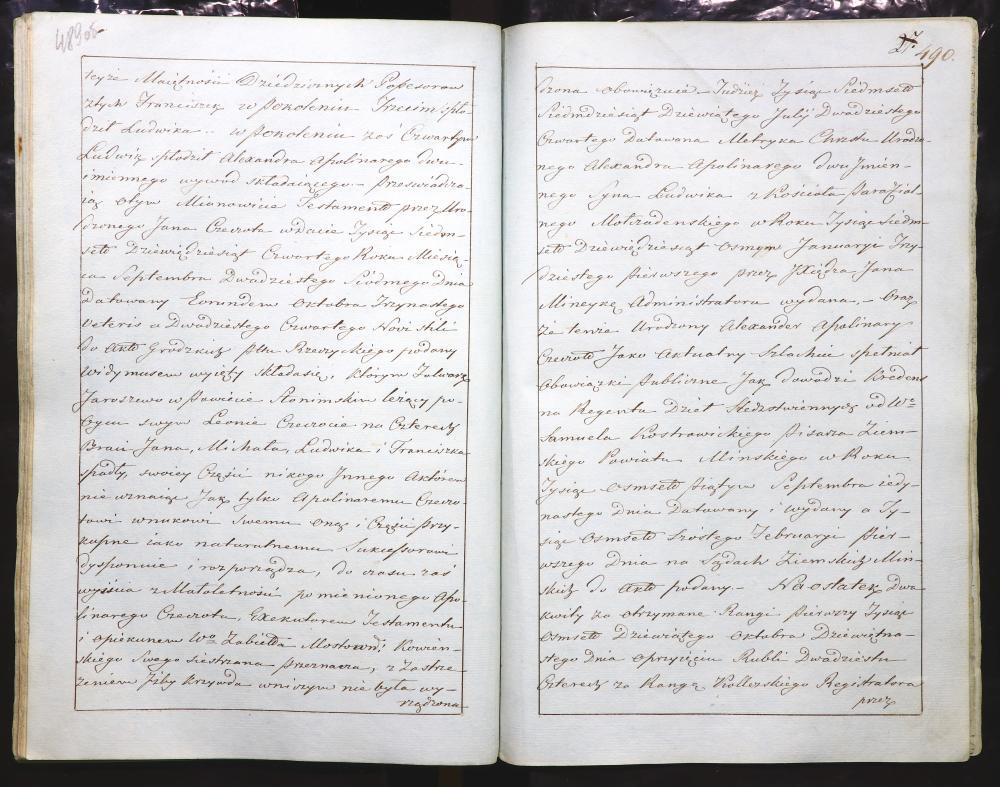 489 ob
teyże Maiętności Dziedzicznych Possessorow
złtych Franciszeg w Pokoleniu Trzecim spło-
dził Ludwika.. w Pokoleniu zaś Czwartym
Ludwig spłodził Alexandra Apolinarego dwu-
imiennego wywod składaiącego – Przeswiadcza-
ią otym Mianowicie Testament przez Uro-
dzonego Jana Czeczota wdacie Tysiąc Siedm-
set Dziewiędziesiąt Czwartego Roku Miesią-
ca Septembra Dwudziestego Siódmego Dnia
Datowany Eorundem Oktobra Trzynastego
Veteris a Dwudziestego Czwartego Novi stili
do Akt Grodzkich Pttu Rzeczyckiego podany
widymusem wyięty składasię, którym Folwarg
Jaroszewo w Powiecie Słonimskim leżący po-
Oycu swym Leonie Czeczocie na Czterech
Braci Jana, Michała, Ludwika i Franciszka
spadły, swoiey Części nikogo Innego Aktorem
nie uznaiąc Jak tylko Apolinaremu Czeczo-
towi wnukowi Swemu oną i Części Przy-
kupne iako naturalnemu Sukcessorowi
dysponuie i rozporządza, do czasu zaś
wyiścia z Małoletnosci pomienionego Apo-
linarego Czeczota, Exekutorem Testamentu
i opiekunem Wo Zabiełłą Mostown: Kowień-
skiego Swego siestrzana przeznacza, z Zastrze-
żeniem Żiby krzywda wniczym nie była wy-
rządzona
27. 490.
dzona obowiązuie – Tudziez Tysiąc Siedmset
Siedmdziesiąt Dziewiątego Julij Dwudziestego
Czwartego Datowana Metryka Chrztu Urodzo-
nego Alexandra Apolinarego dwuJmien-
nego Syna Ludwika z Kościoła Parafial-
nego Mołczadenskiego w Roku Tysiąc Siedm-
set Dziewiędziesiąt Osmym Januaryi Trzy-
dziestego Pierwszego przez Xiędza Jana
Mineykę Administratora wydana, – Oraz
Ze tenże Urodzony Alexander Apolinary
Czeczott Jako Aktualny Szlachcic spełniał
obowiązki Publiczne Jak dowodzi Kredens
na Regenta Dzieł Sledztwiennych od Wo
Samuela Kostrowickiego Pisarza Ziem-
skiego Powiatu Mińskiego w Roku
Tysiąc Osmset Piątym Septembra iedy-
nastego Dnia Datowany i wydany a Ty-
siąc Osmset Szóstego Februaryi Pier-
wszego Dnia na Sądach Ziemskich Min-
skich do Akt podany – Naostatek Dwa
kwity za otrzymane Rangi Pierwszy Tysiąc
Osmset Dziewiątego Oktobra Dziewiętna-
stego Dnia oprzyięciu Rubli Dwudziestu
Czterech za Rangę Kollezskiego Registratora
przez